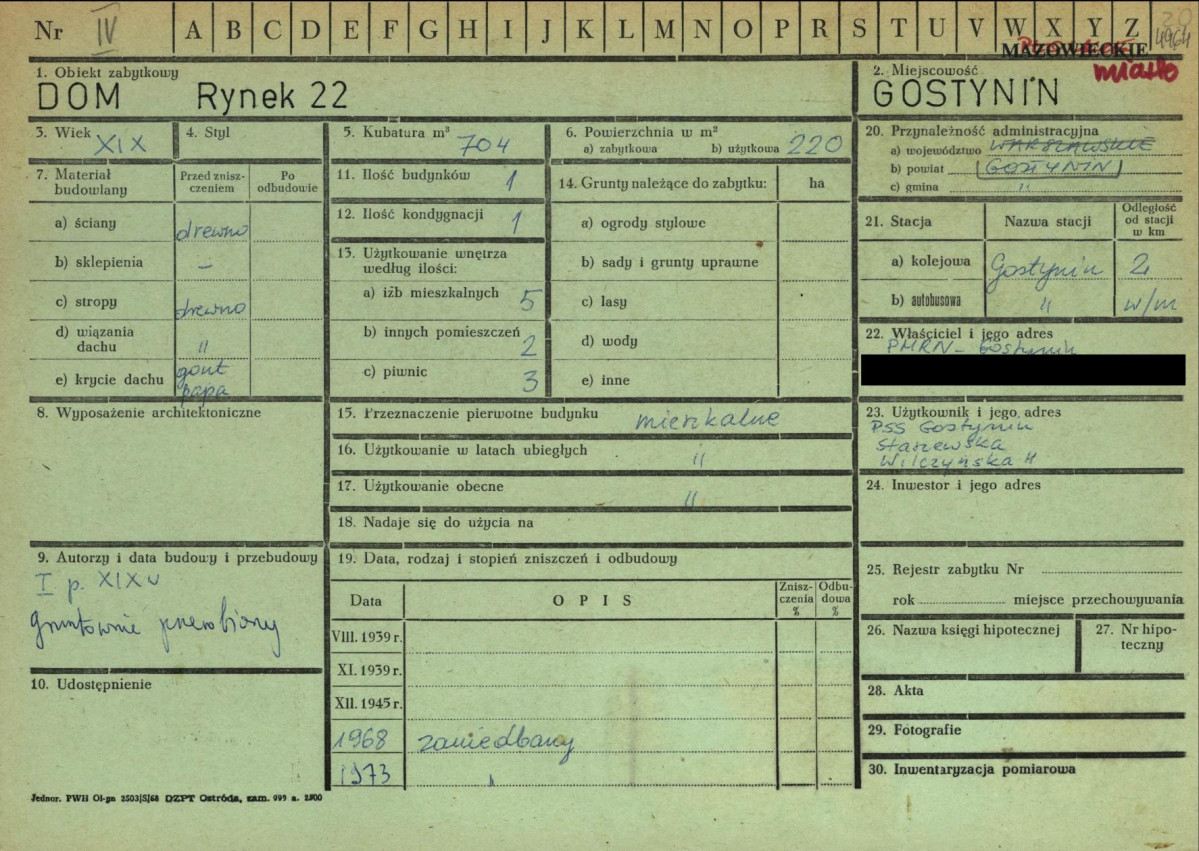 Nr IV A B C D E F G H I J K L M N O P R S T U V W X Y Z 20
4964
MAZOWIECKIE
miasto
1. Obiekt zabytkowy
DOM Rynek 22
2. Miejscowość
GOSTYNIN
3. Wiek XIX
4. Styl
5. Kubatura m³ 704
6. Powierzchnia w m²
a) zabytkowa b) użytkowa 220
7. Materiał budowlany
Przed zniszczeniem
Po odbudowie
a) ściany drewno
b) sklepienia —
c) stropy drewno
d) wiązania dachu "
e) krycie dachu gont papa
8. Wyposażenie architektoniczne
9. Autorzy i data budowy i przebudowy
I p. XIX w
gruntownie przerobiony
10. Udostępnienie
11. Ilość budynków 1
12. Ilość kondygnacji 1
13. Użytkowanie wnętrza
według ilości:
a) iżb mieszkalnych 5
b) innych pomieszczeń 2
c) piwnic 3
14. Grunty należące do zabytku: ha
a) ogrody stylowe
b) sady i grunty uprawne
c) lasy
d) wody
e) inne
15. Przeznaczenie pierwotne budynku mieszkalne
16. Użytkowanie w latach ubiegłych "
17. Użytkowanie obecne "
18. Nadaje się do użycia na
19. Data, rodzaj i stopień zniszczeń i odbudowy
Data OPIS Zniszczenia % Odbudowa %
VIII. 1939 r.
XI. 1939 r.
XII. 1945 r.
1968 zaniedbany
1973 "
20. Przynależność administracyjna
a) województwo WARSZAWSKIE
b) powiat GOSTYNIN
c) gmina "
21. Stacja Nazwa stacji Odległość od stacji w km
a) kolejowa Gostynin 2
b) autobusowa " w/m
22. Właściciel i jego adres
PMRN - Gostynin
23. Użytkownik i jego adres
PSS Gostynin
Staszewska
Wilczyńska H
24. Inwestor i jego adres
25. Rejestr zabytku Nr
rok miejsce przechowywania
26. Nazwa księgi hipotecznej
27. Nr hipoteczny
28. Akta
29. Fotografie
30. Inwentaryzacja pomiarowa
Jednor. PWH Ol-gn 2503/S/68 DZPT Ostróda, zam. 999 a. 2500